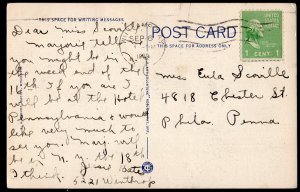 THIS SPACE FOR WRITING MESSAGES
POST CARD
THIS SPACE FOR ADDRESS ONLY
SEP
1 CENT 1
Dear Miss Scoville
Marjory tells
you might be in
the week end of the
16th If you are I
will be at the Hotel
Pennsylvania & would
like very much to
see you. Mary will
be in N. Y. the 18th
I think. Jessie
5221 Winthrop
Miss Eula Scoville
4818 Chester St.
Phila. Penna